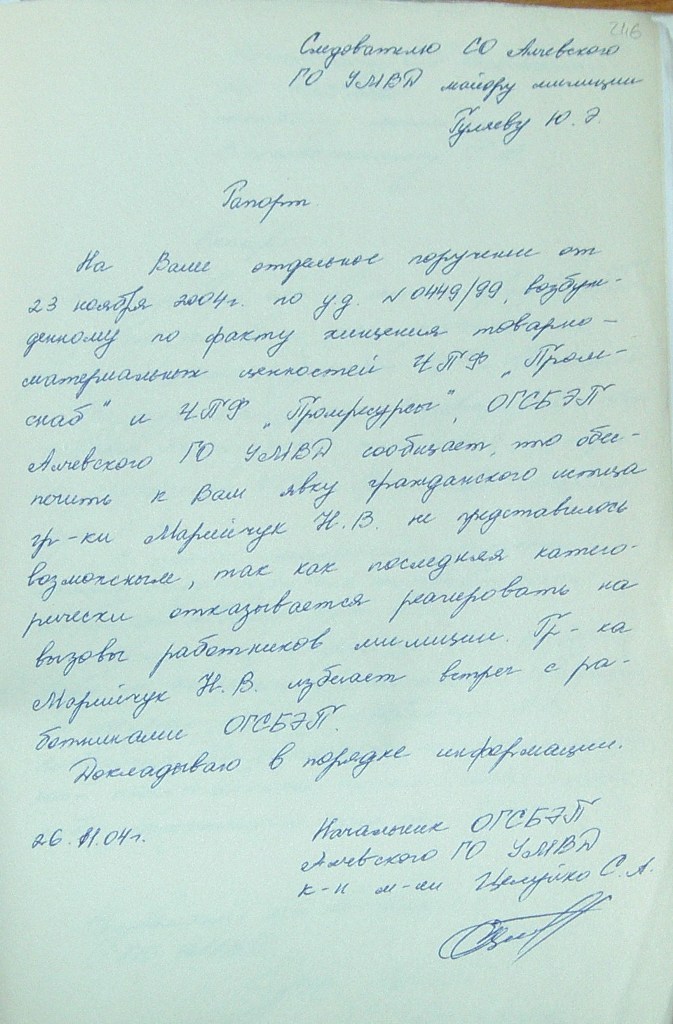 246
Следователю СО Алчевского
ГО УМВД майору милиции
Гуляеву Ю. Э.
Рапорт.
На Ваше отдельное поручение от
23 ноября 2004г. по у.д. №0449/99, возбуж-
денному по факту хищения товарно-
материальных ценностей ЧПФ „Пром-
снаб" и ЧПФ „Промресурсы", ОГСБЭП
Алчевского ГО УМВД сообщает, что обес-
печить к Вам явку гражданского истца
гр-ки Марийчук Н.В. не представилось
возможным, так как последняя катего-
рически отказывается реагировать на
вызовы работников милиции. Гр-ка
Марийчук Н.В. избегает встреч с ра-
ботниками ОГСБЭП.
Докладываю в порядке информации.
26.11.04г.
Начальник ОГСБЭП
Алчевского ГО УМВД
к-н м-ии Целуйко С.А.